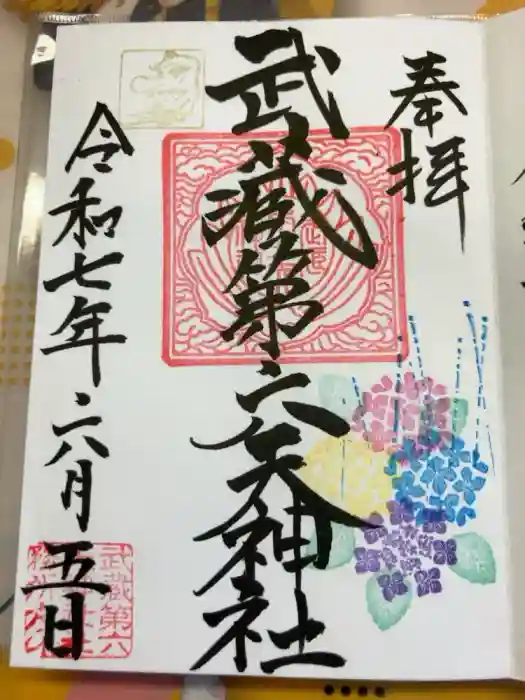 奉拝
武蔵第六天神社
令和七年六月五日
武蔵第六